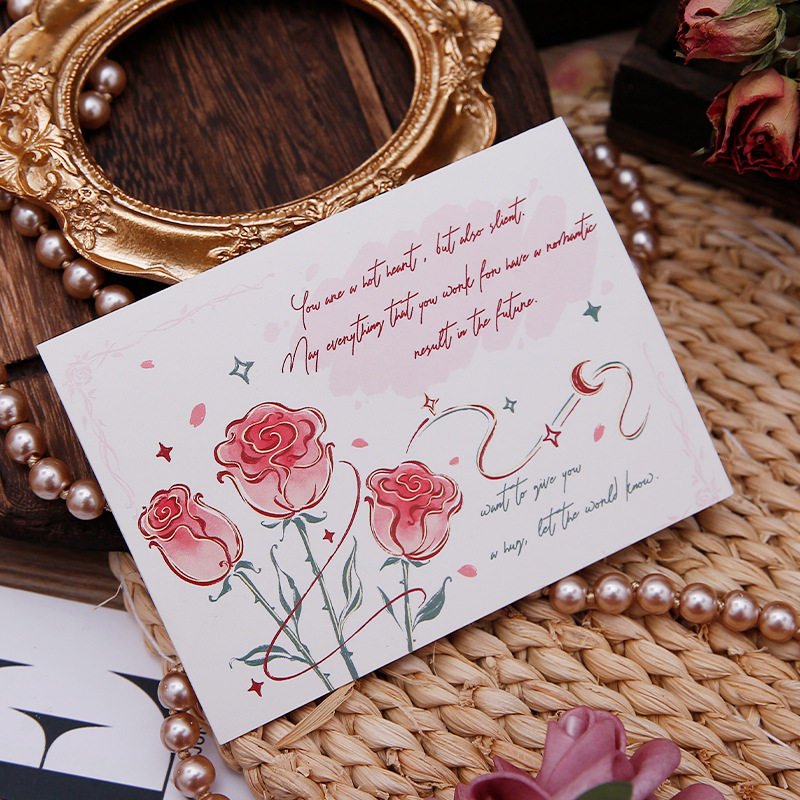 You are a hot heart, but also slient.
May everything that you work for have a romantic
result in the future.
want to give you
a hug, let the world know.